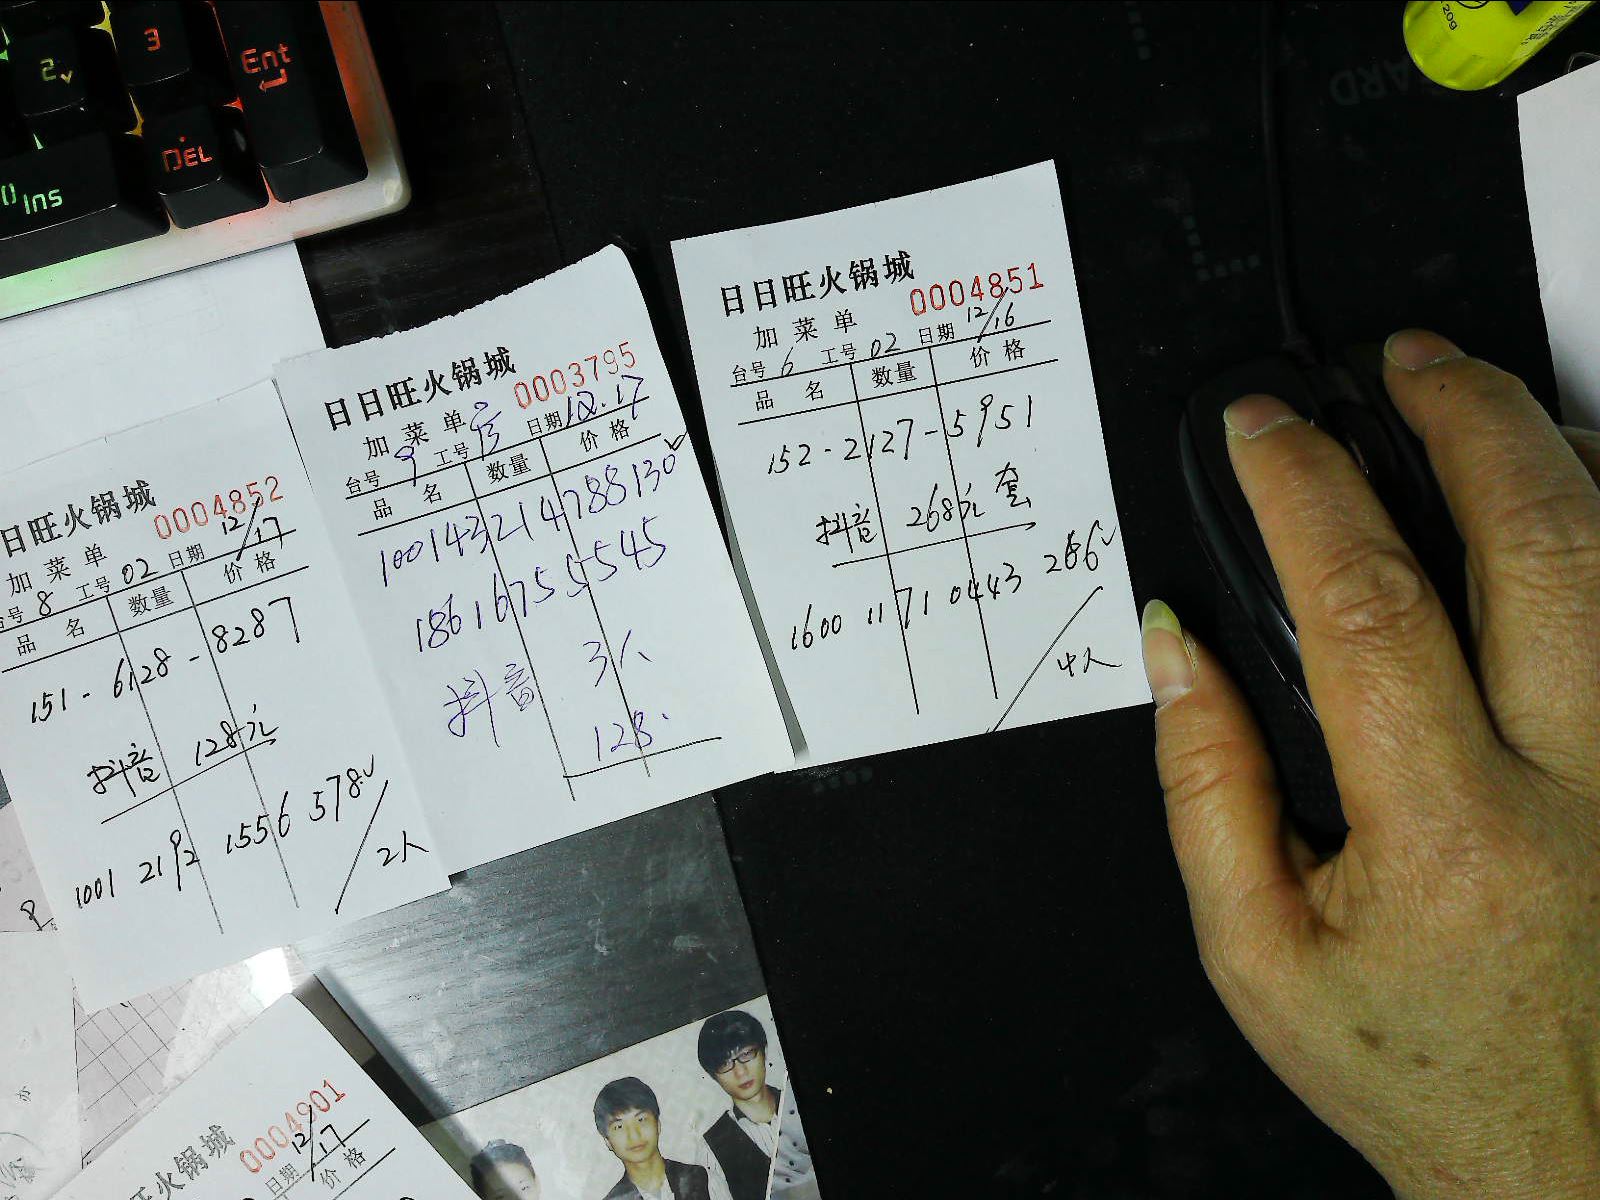 2
3
Ent
DEL
Ins
20g
日日旺火锅城
0004851
加菜单
台号 6 工号 02 日期 12/16
品名 数量 价格
152-2127-5951
抖音 268元 套
1600 1171 0443 266
4人
日日旺火锅城
0003795
加菜单
台号 9 工号 日期 12.17
品名 数量 价格
100143214788130
18616755545
抖音 3人
128.
日旺火锅城
0004852
加菜单
台号 8 工号 02 日期 12/17
品名 数量 价格
151-6128-8287
抖音 128元
1001 2192 1556 578
2人
0004901
旺火锅城
日期 12/17
价格